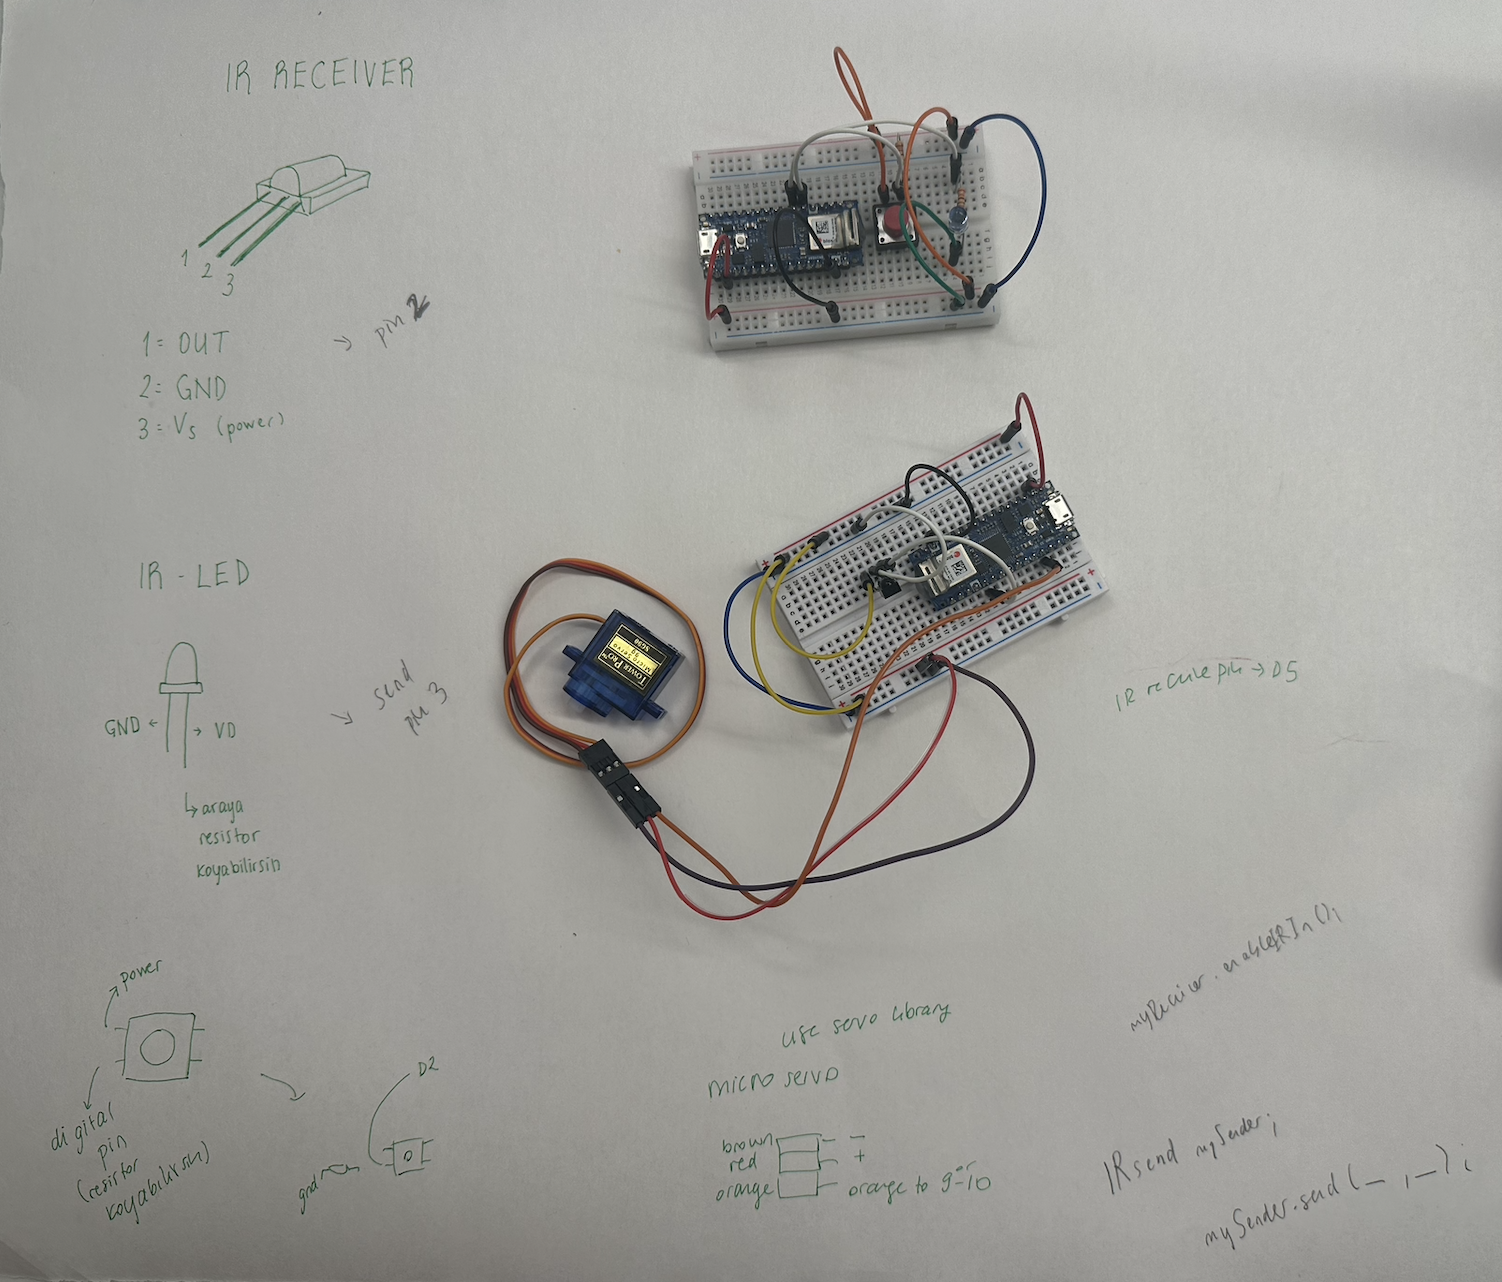 IR RECEIVER
1
2
3
1= OUT → pin 2
2= GND
3= Vs (power)
IR - LED
GND ← → VD
↳ araya
resistor
koyabilirsin
→ send
pin 3
TOWER PRO
MICRO SERVO
9g
SG90
IR receive pin → D5
power
digital
pin
(resistor
koyabilirsin)
D2
gnd
use servo library
MICRO SERVO
brown −
red +
orange orange to 9-10
or
myReceiver.enableIRIn();
IRsend mySender;
mySender.send(_,_);